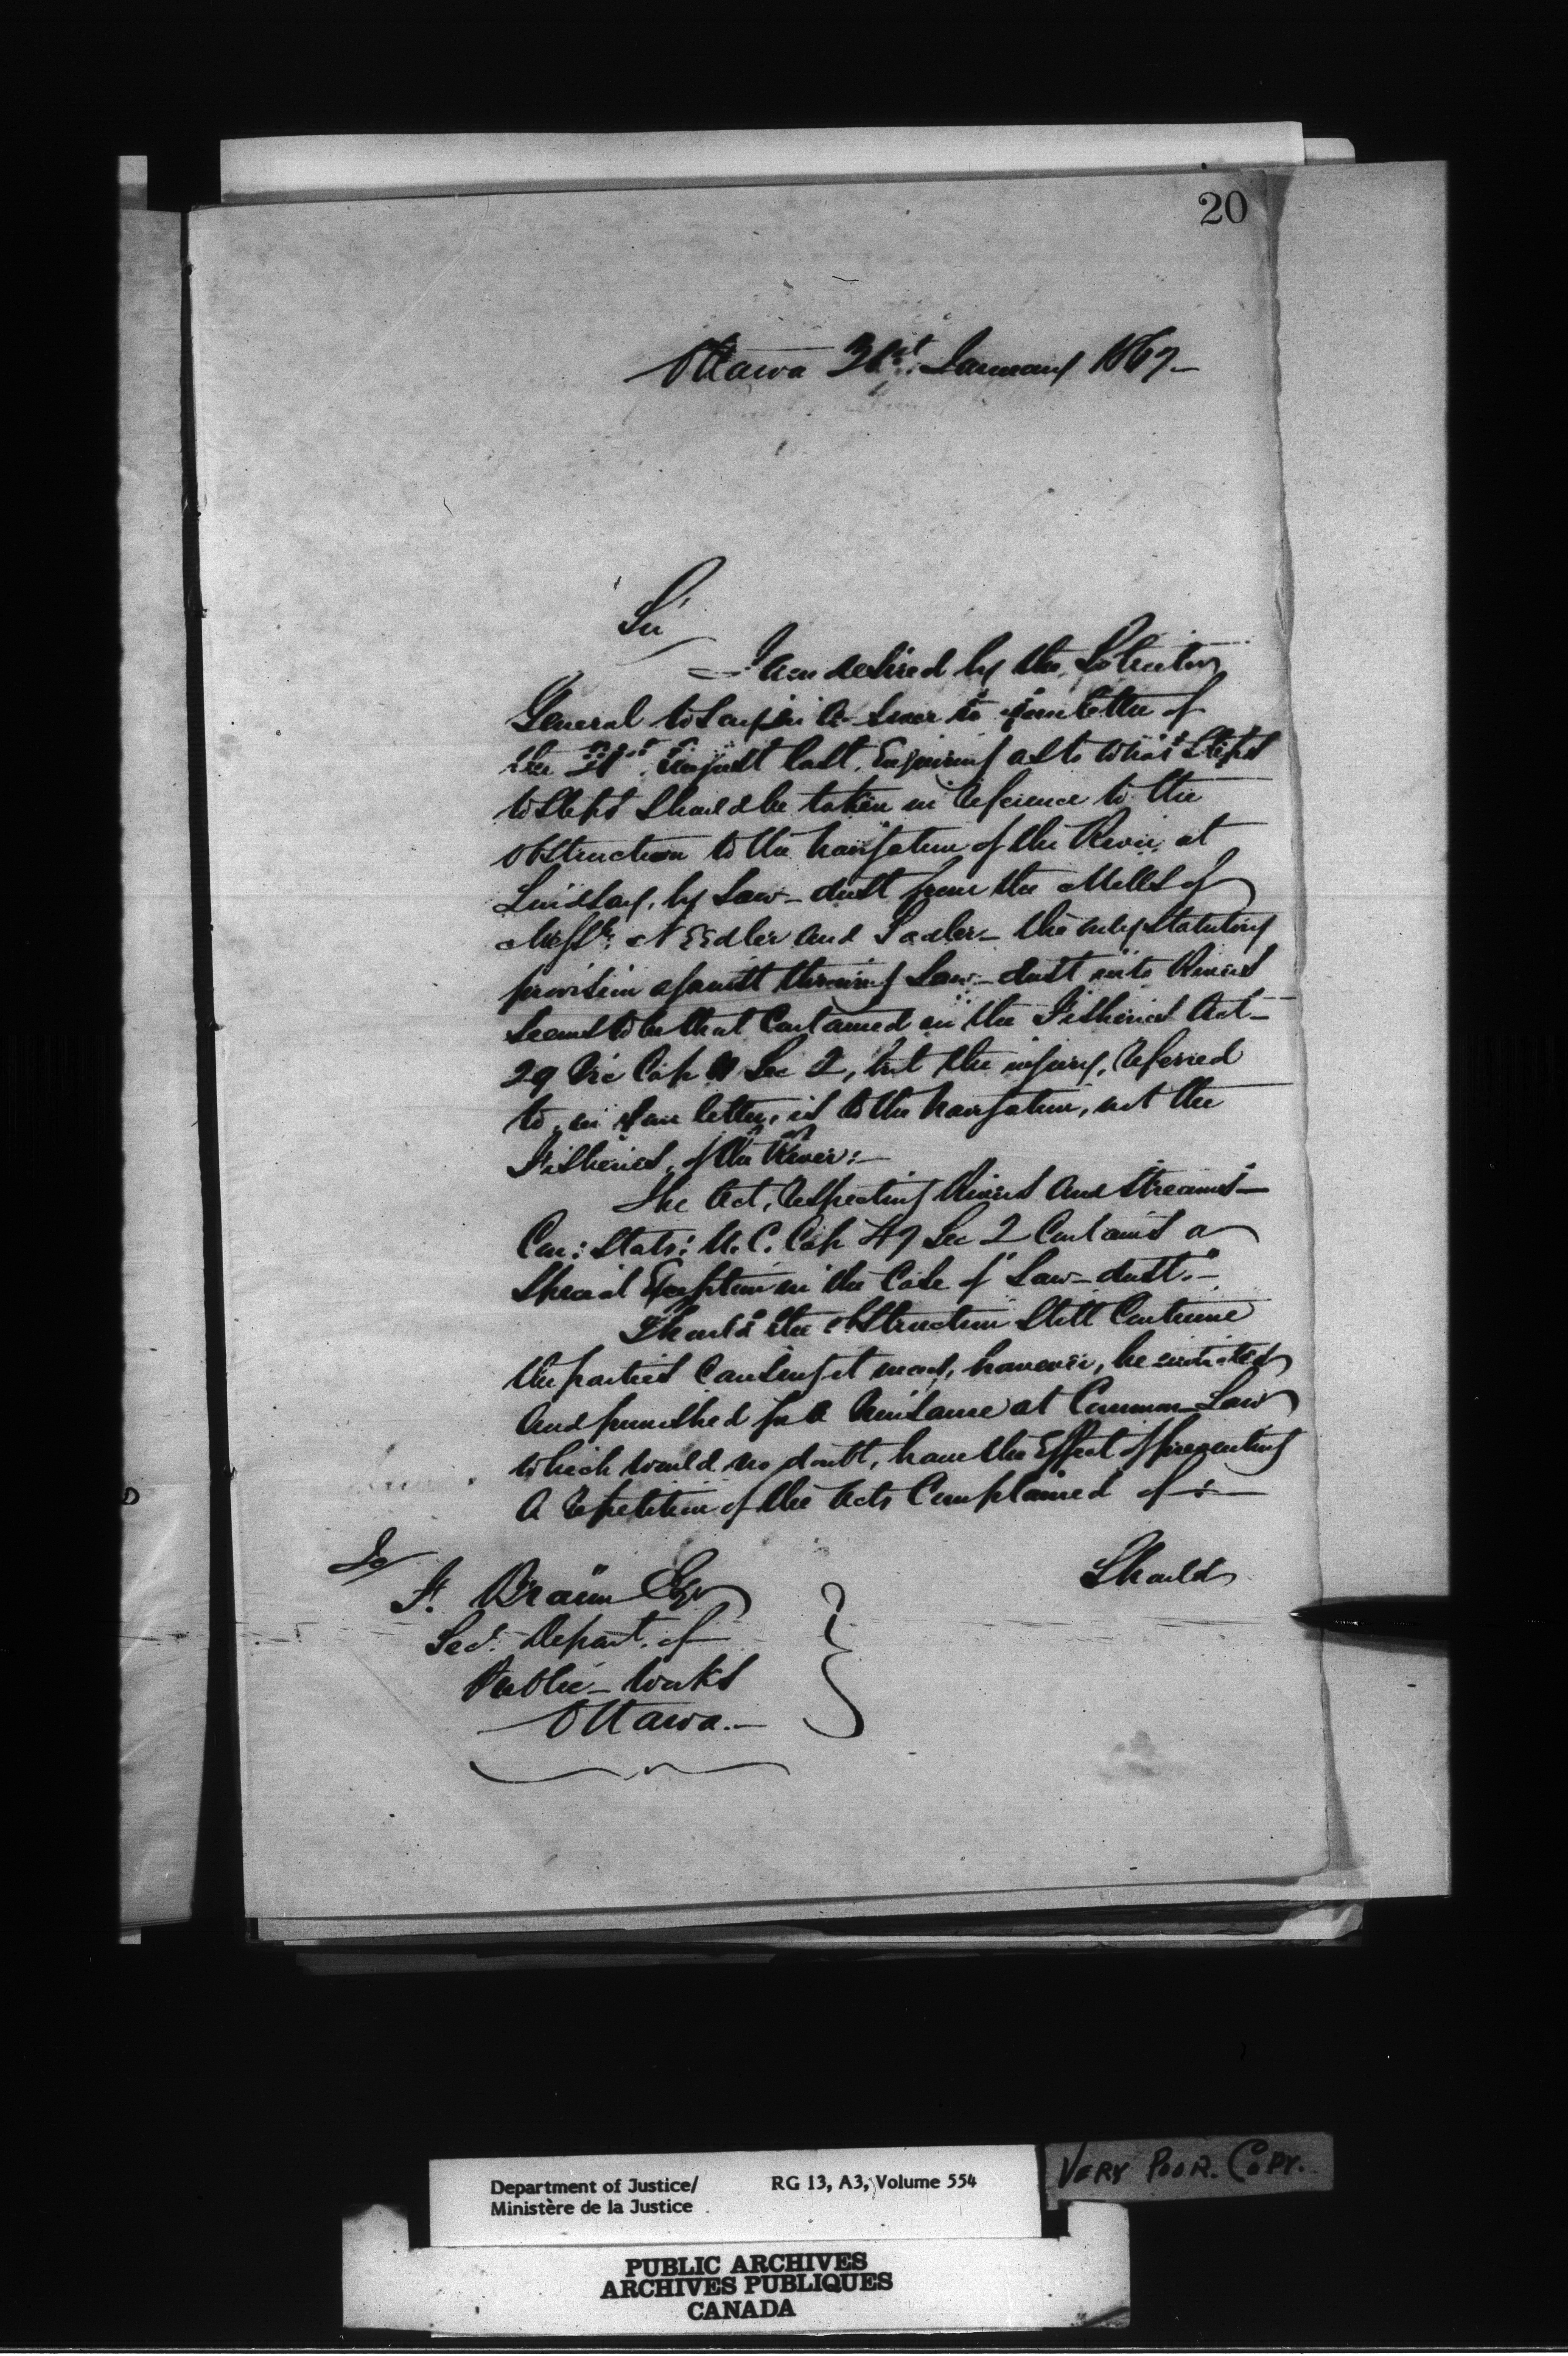 20
Ottawa 31st January 1867
Sir
I am desired by the Solicitor
General to say in answer to your letter of
the 21st August last, Enquiring as to what steps
to steps should be taken in reference to the
obstruction to the navigation of the River at
Lindsay, by Saw-dust from the Mills of
Messrs: Needler and Sadler - the only statutory
provision against throwing Saw-dust into Rivers
seems to be that Contained in the Fisheries Act -
29 Vic Cap 11 Sec 2, but the injury, referred
to, in your letter, is to the navigation, not the
Fisheries, of the River: -
The Act, respecting Rivers and Streams -
Con: Stats: U. C. Cap 47 Sec 2 Contains a
Special Exception in the Case of "Saw-dust." -
Should the obstruction still Continue
the parties Causing it may, however, be indicted
and punished for a Nuisance at Common Law
which would no doubt, have the Effect of preventing
A repetition of the Acts Complained of: -
Should
F. Braun Esqr
Secy. Depart. of
Public - Works
Ottawa. -
Department of Justice/
Ministère de la Justice
RG 13, A3, Volume 554
VERY POOR. COPY.
PUBLIC ARCHIVES
ARCHIVES PUBLIQUES
CANADA